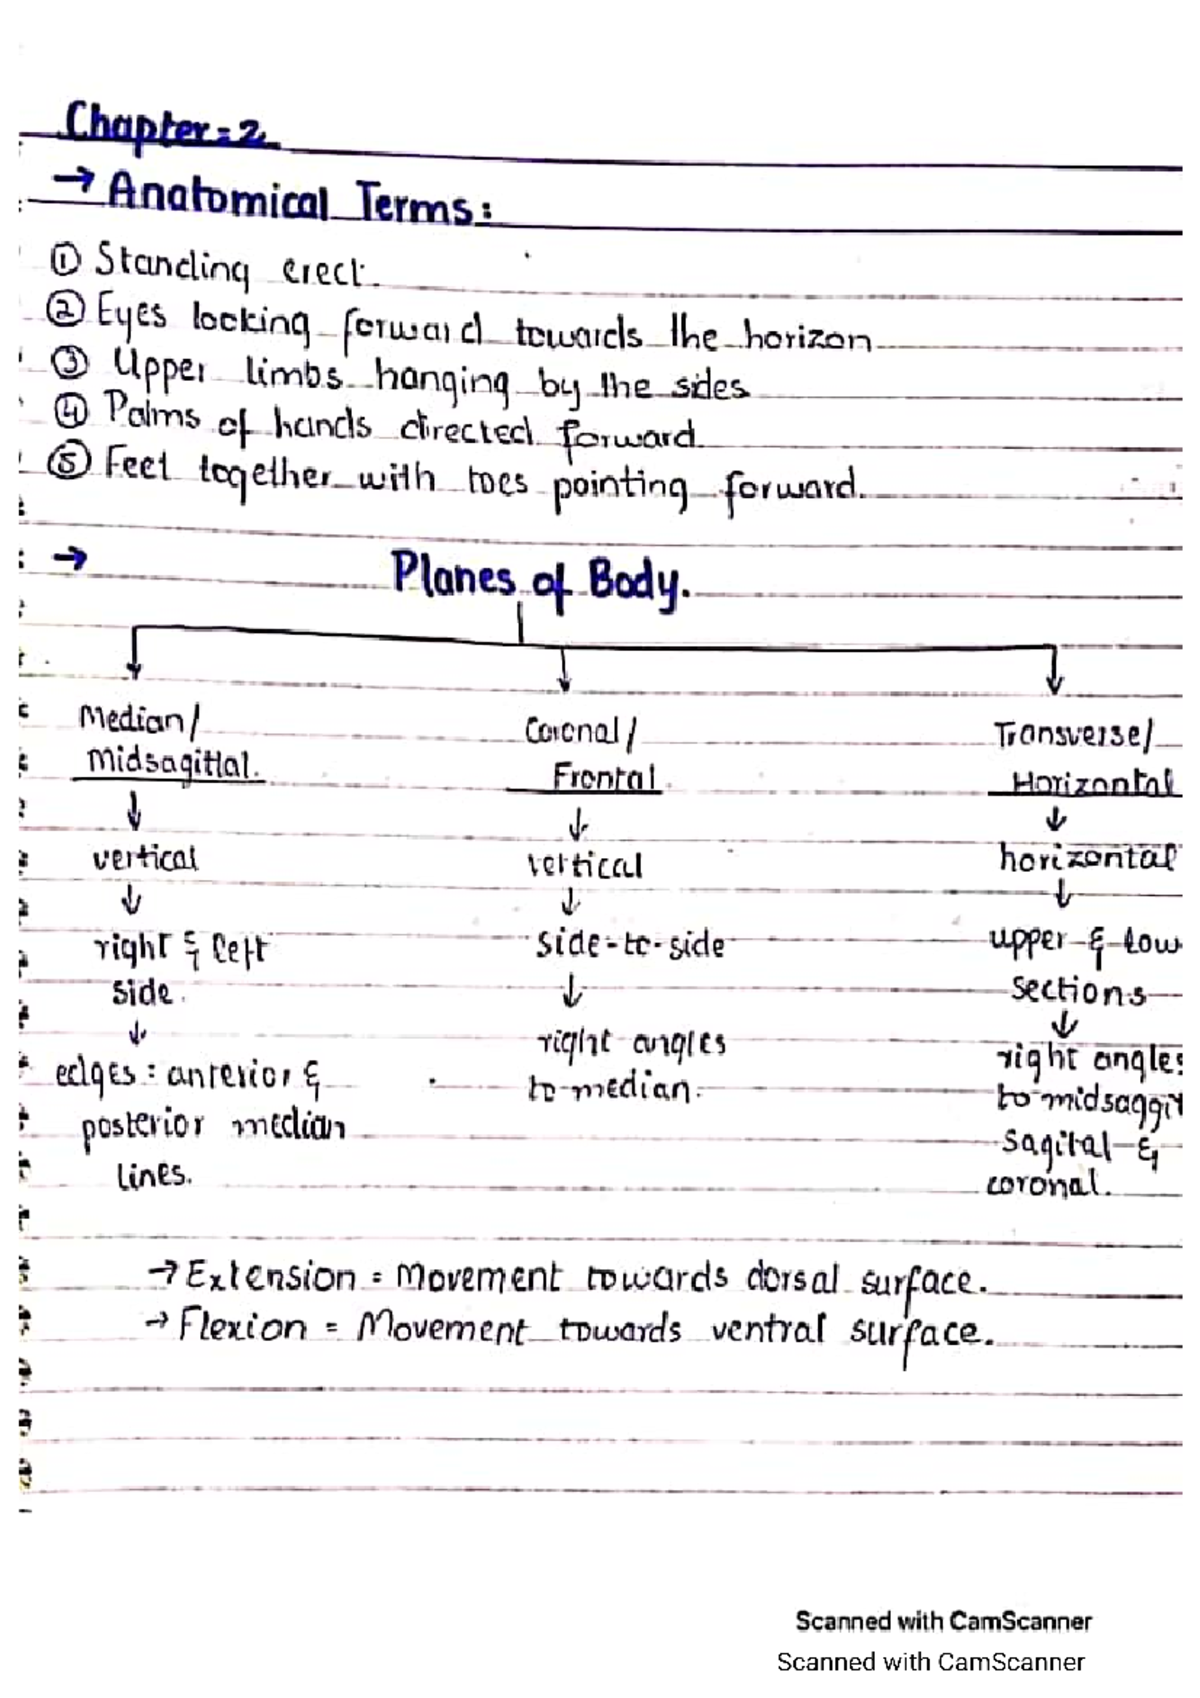 Chapter = 2
→ Anatomical Terms:
① Standing erect.
② Eyes looking forward towards the horizon
③ Upper limbs hanging by the sides
④ Palms of hands directed forward.
⑤ Feet together with toes pointing forward.
→ Planes of Body.
Median/ Coronal/ Transverse/
Midsagittal. Frontal. Horizontal
↓ ↓ ↓
vertical vertical horizontal
↓ ↓ ↓
right & left side-to-side upper & low
side. ↓ sections
↓ right angles ↓
edges: anterior & to median. right angles
posterior median to midsaggit
lines. sagital &
coronal.
→ Extension = Movement towards dorsal surface.
→ Flexion = Movement towards ventral surface.
Scanned with CamScanner
Scanned with CamScanner